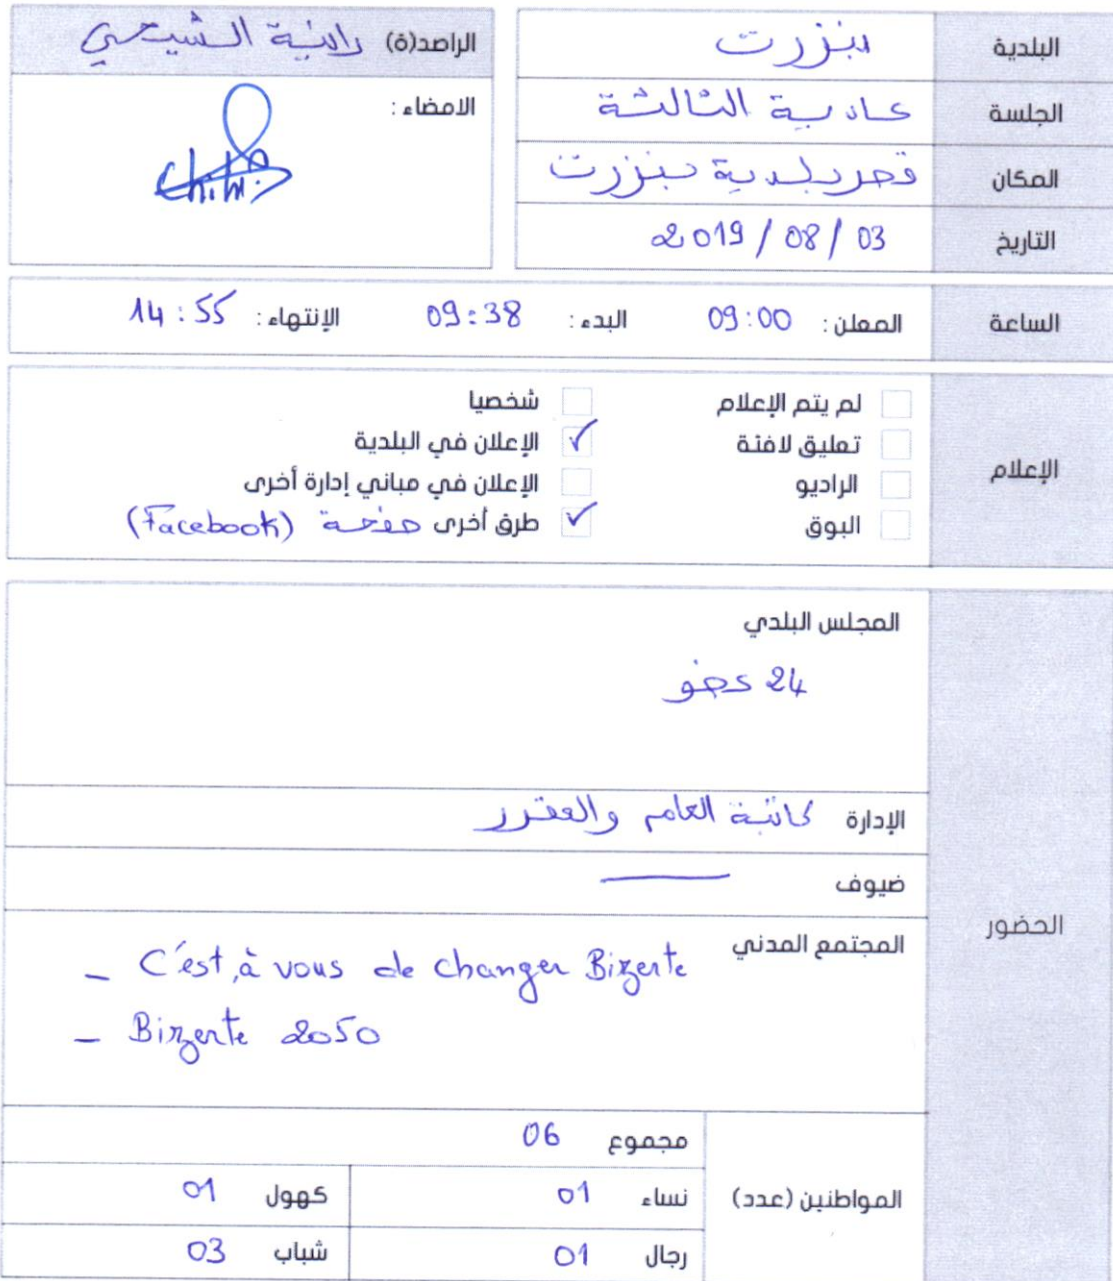 البلدية بنزرت
الجلسة عادية الثالثة
المكان قصر بلدية بنزرت
التاريخ 03 / 08 / 2019
الراصد(ة) رانية الشيحي
الامضاء :
الساعة المعلن : 09:00 البدء : 09:38 الإنتهاء : 14:55
الإعلام
لم يتم الإعلام
تعليق لافتة
الراديو
البوق
شخصيا
✓ الإعلان في البلدية
الإعلان في مباني إدارة أخرى
✓ طرق أخرى صفحة (Facebook)
الحضور
المجلس البلدي
24 عضو
الإدارة كاتبة العام والمقرر
ضيوف —
المجتمع المدني
- C'est à vous de changer Bizerte
- Bizerte 2050
المواطنين (عدد)
مجموع 06
نساء 01 كهول 01
رجال 01 شباب 03